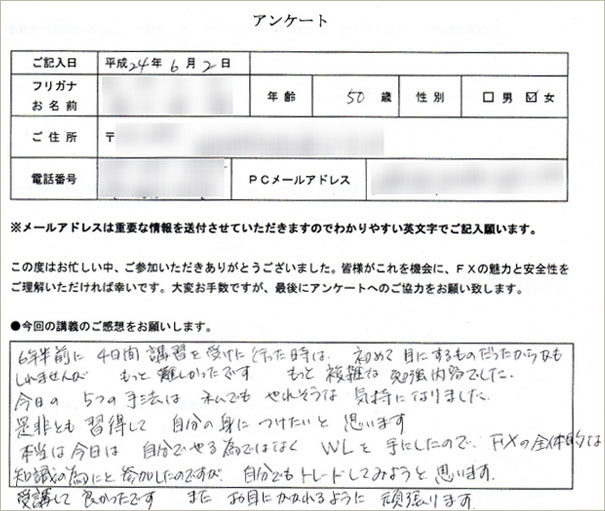 アンケート
ご記入日 平成24年6月2日
フリガナ
お名前 年齢 50歳 性別 □男 ☑女
ご住所 〒
電話番号 PCメールアドレス
※メールアドレスは重要な情報を送付させていただきますのでわかりやすい英文字でご記入願います。
この度はお忙しい中、ご参加いただきありがとうございました。皆様がこれを機会に、FXの魅力と安全性を
ご理解いただければ幸いです。大変お手数ですが、最後にアンケートへのご協力をお願い致します。
●今回の講義のご感想をお願いします。
6年半前に 4日間 講習を受けに行った時は、初めて目にするものだったからかも
しれませんが もっと難しかったです もっと複雑な勉強内容でした。
今日の 5つの手法は 私でも やれそうな気持になりました。
是非とも習得して 自分の身につけたいと思います
本当は今日は 自分でやる為ではなく WLを手にしたので、FXの全体的な
知識の為にと参加したのですが、自分でもトレードしてみようと思います。
受講して良かったです また お目にかかれるように 頑張ります